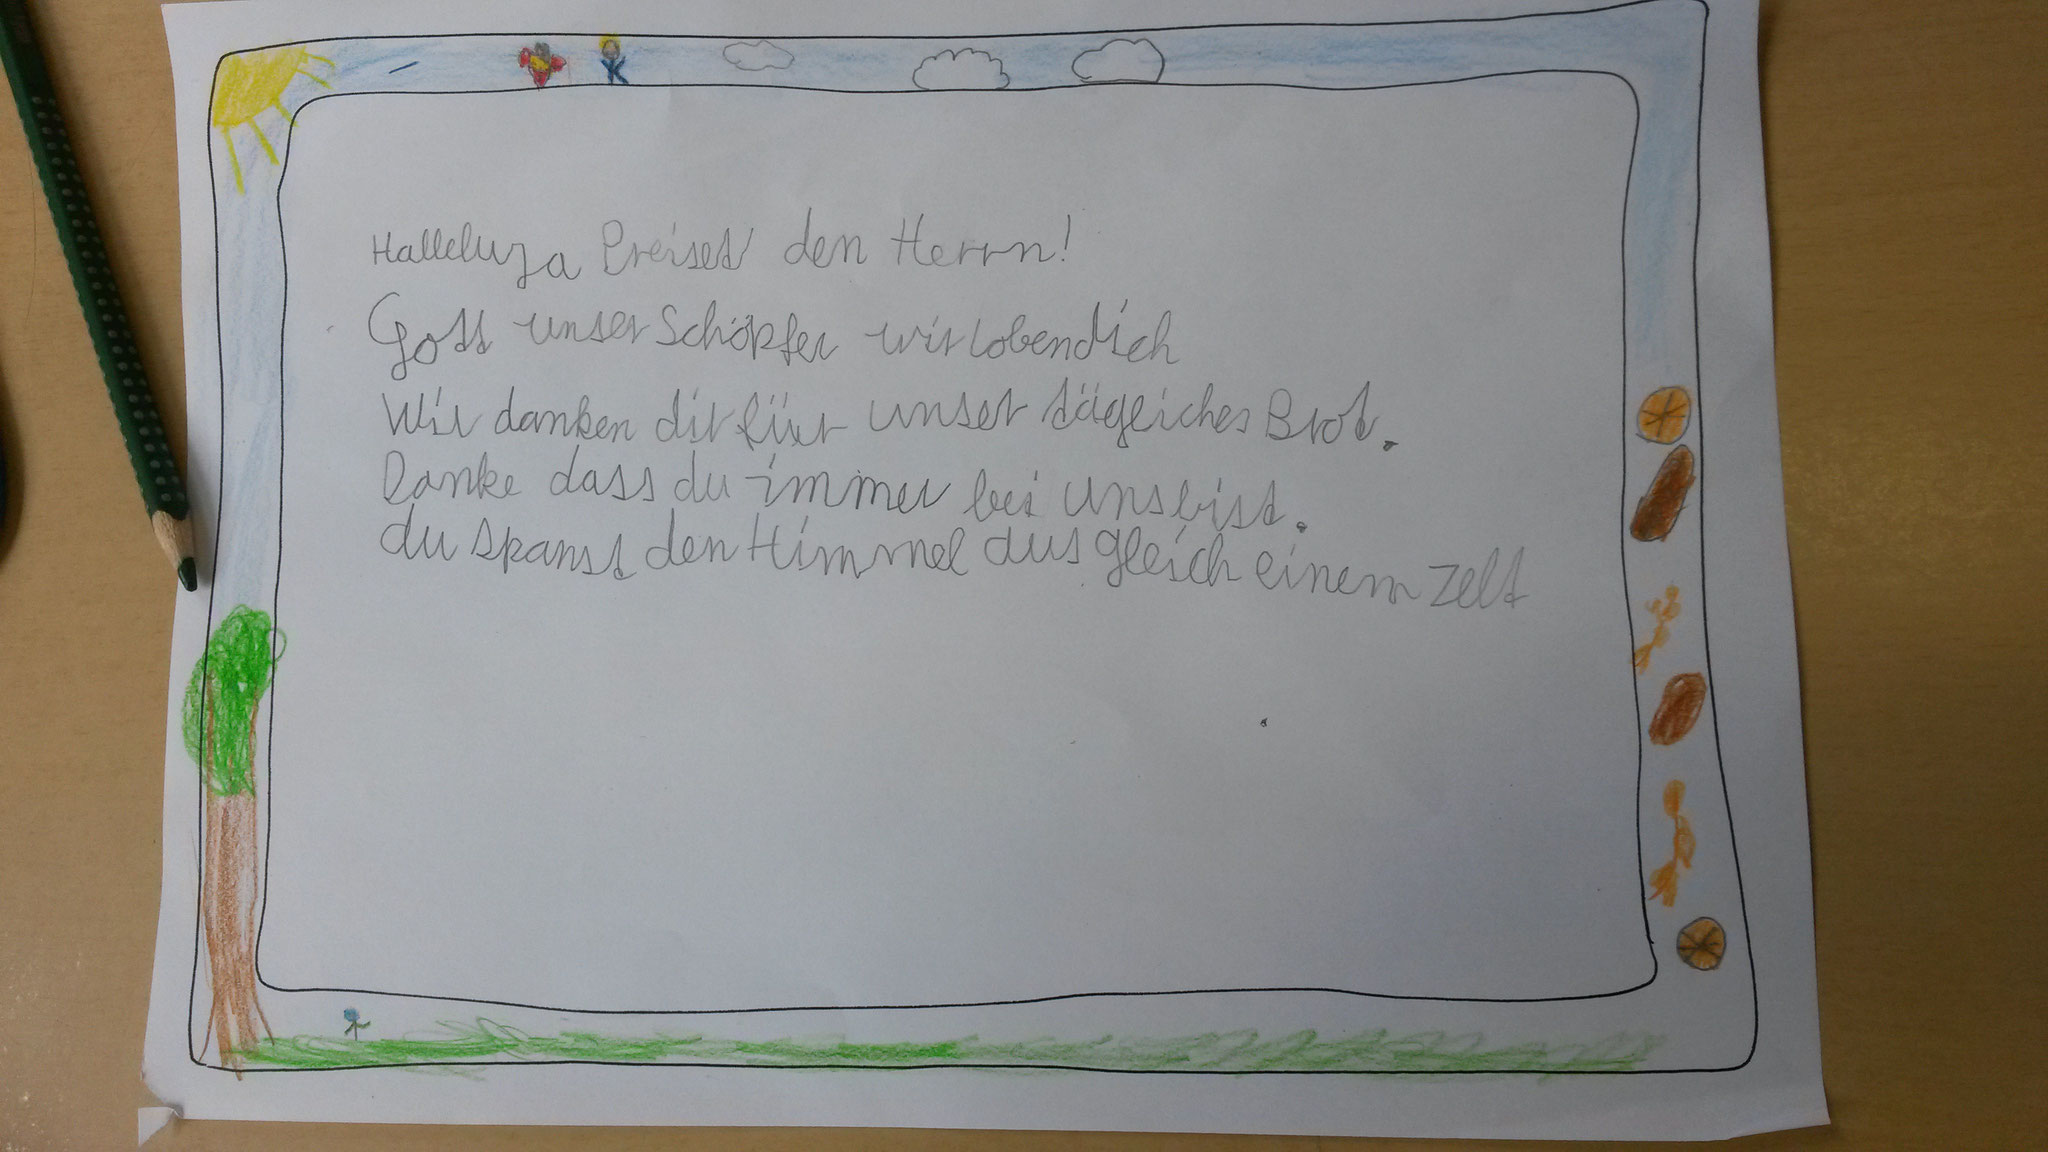 Halleluja Preiset den Herrn!
Gott unser Schöpfer wir loben dich
Wir danken dir für unser tägliches Brot.
Danke dass du immer bei uns bist.
du spanst den Himmel aus gleich einem Zelt